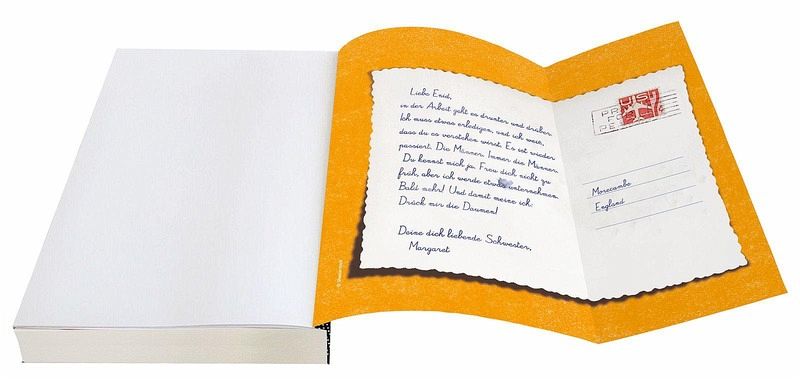 Liebe Enid,
in der Arbeit geht es drunter und drüber.
Ich muss etwas erledigen, und ich weiß,
dass du es verstehen wirst. Es ist wieder
passiert. Die Männer. Immer die Männer.
Du kennst mich ja. Freu dich nicht zu
früh, aber ich werde etwas unternehmen.
Bald mehr! Und damit meine ich:
Drück mir die Daumen!
Deine dich liebende Schwester,
Margaret
US
Morecambe
England